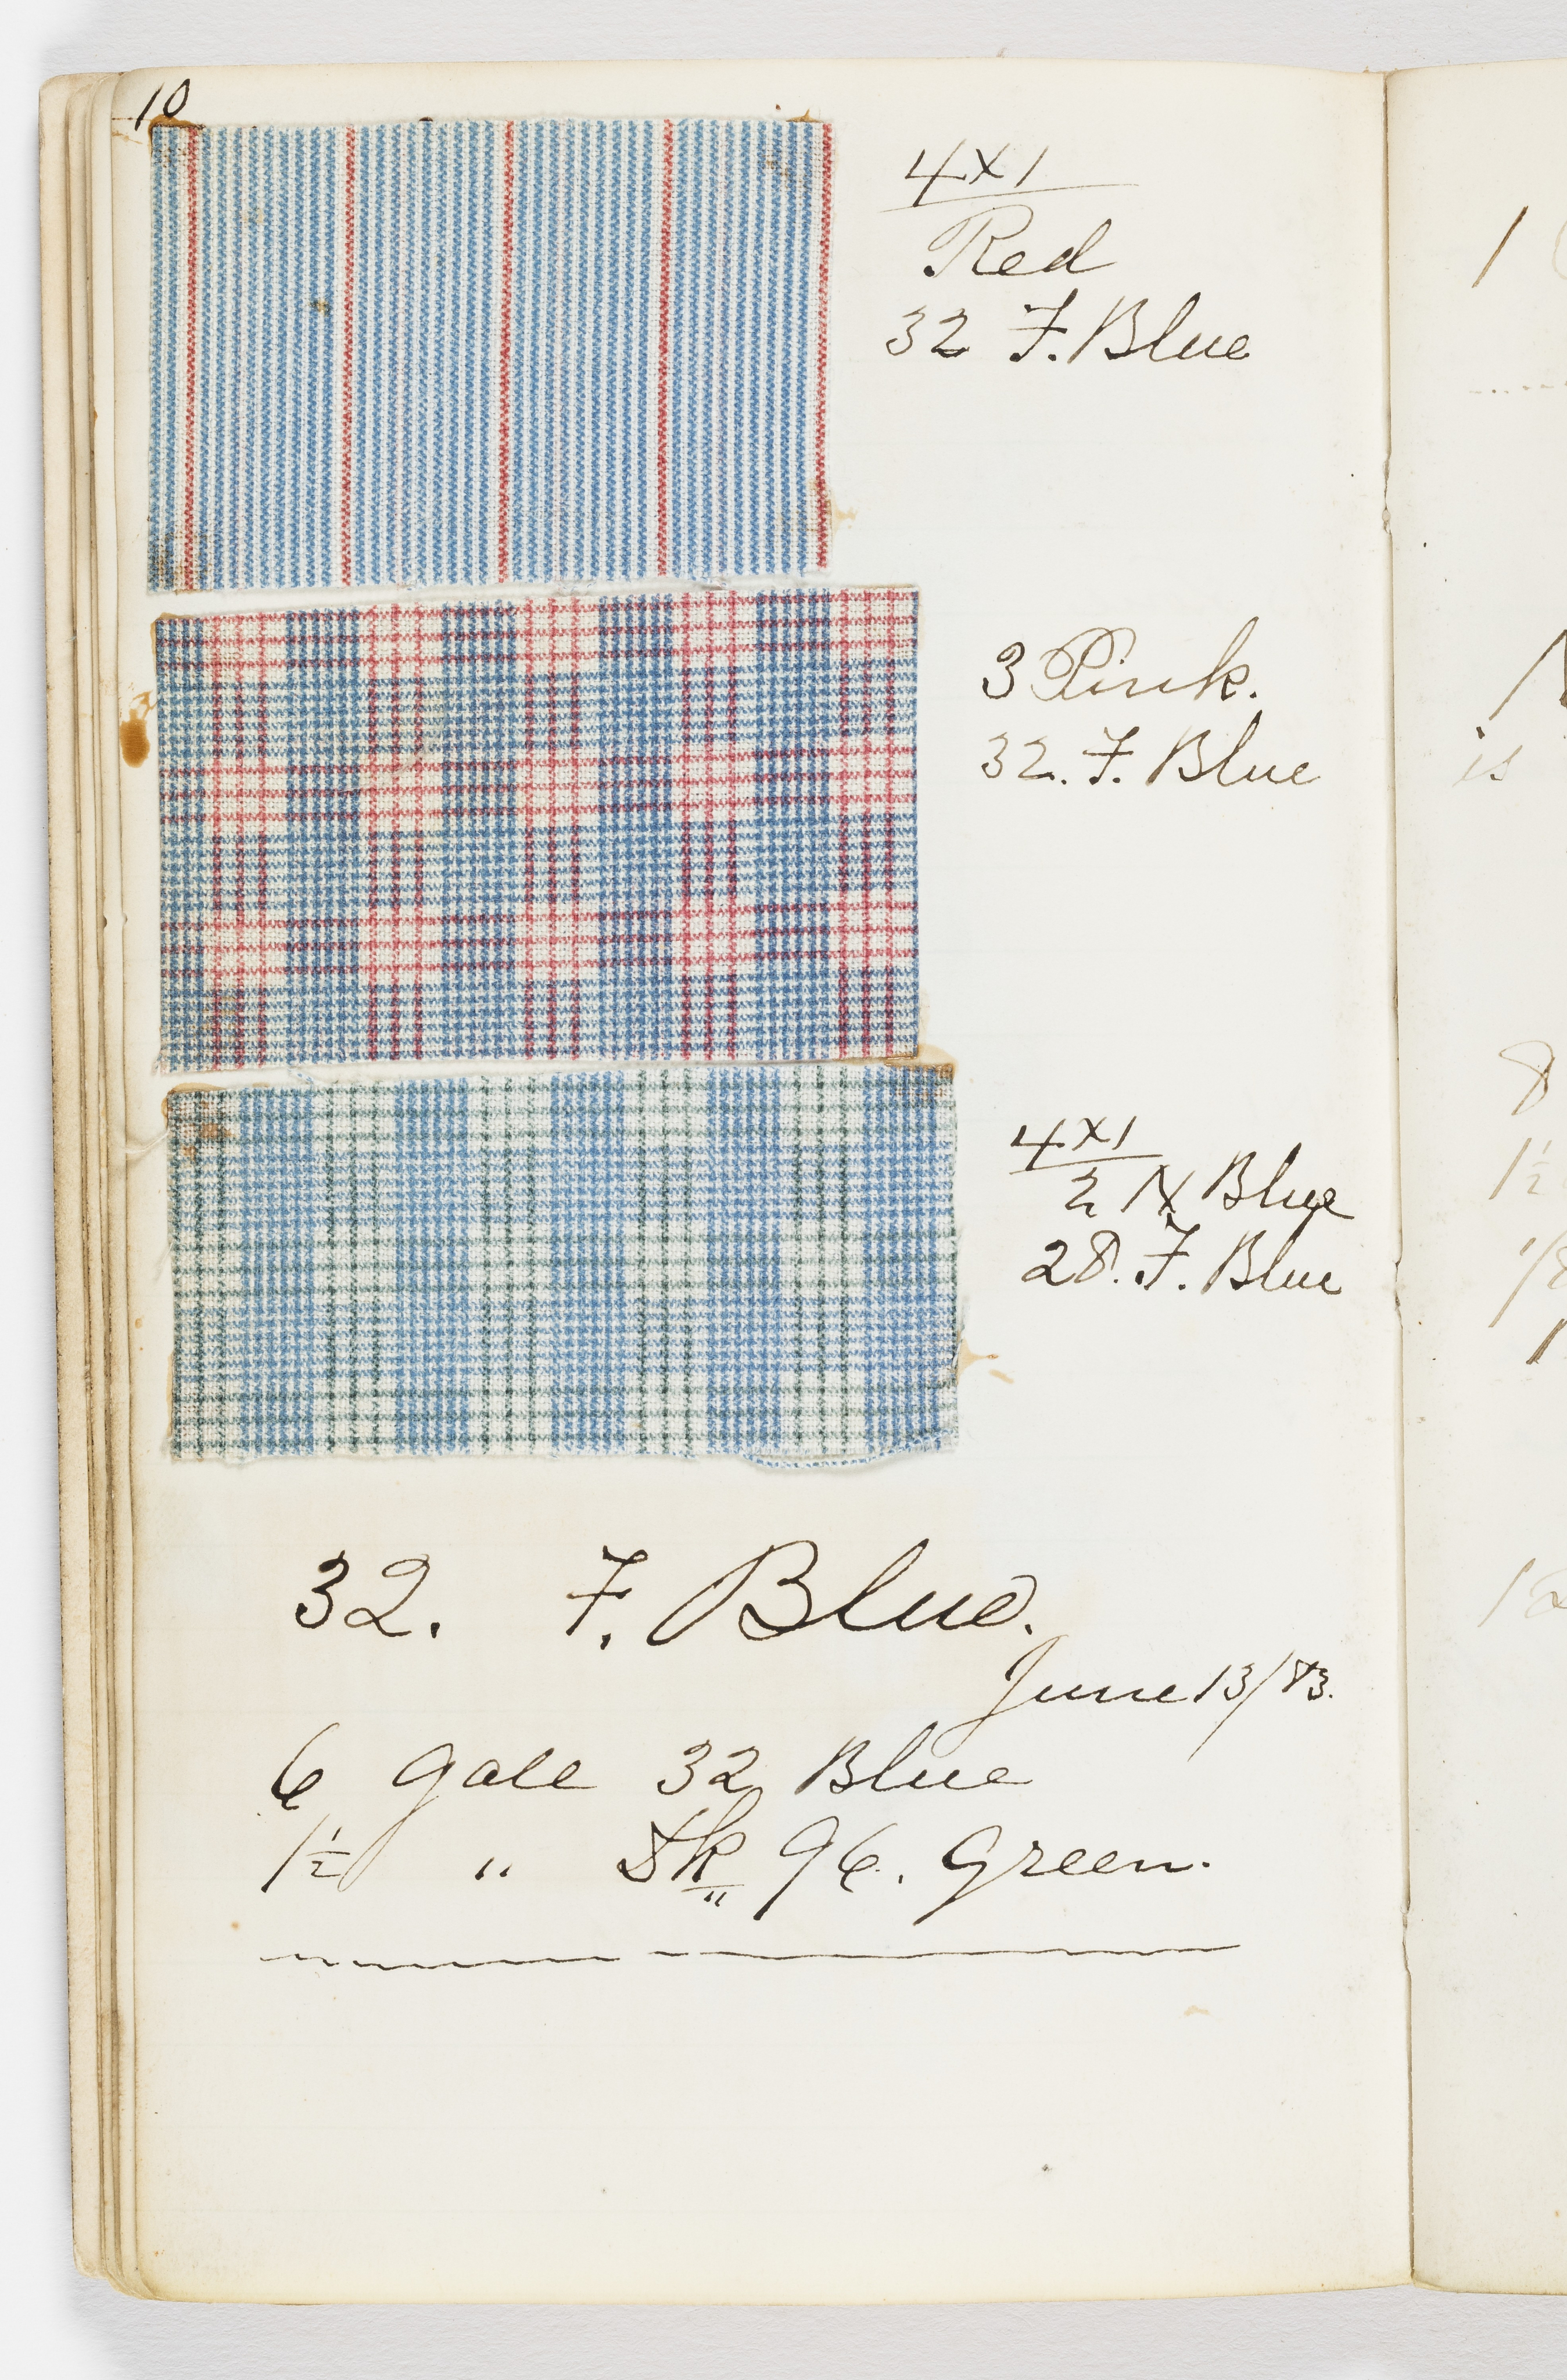 10
4x1
Red
32 F. Blue
3 Pink.
32. F. Blue
4x1
2 N Blue
28. F. Blue
32. F. Blue.
June 13/83.
6 galls 32 Blue
1½ " Dk 96. Green.
1
is
8
1½
1/8
1
12